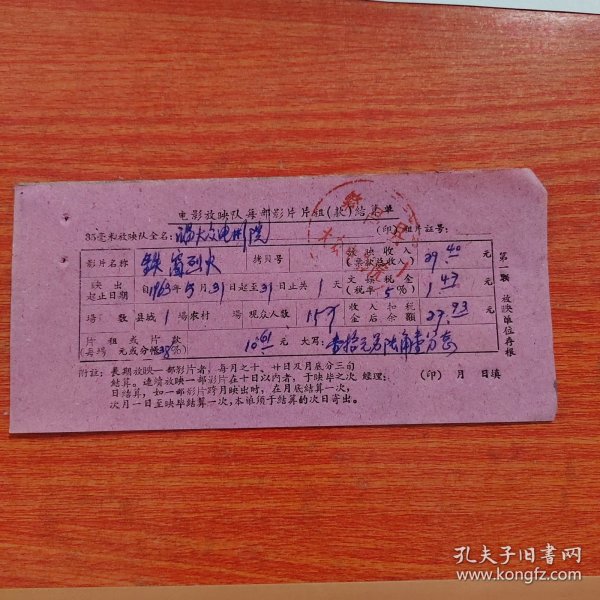 电影放映队每部影片片租(款)结算单
35毫米放映队全名: 大众电影院 (印) 租片证号:
影片名称 铁窗烈火 拷贝号 放映收入(票款总收入) 29.40 元
映出起止日期 自1963年5月31日起至31日共1天 文娱税金(税率5%) 1.47 元
场数 县城1场农村 场 观众人数 157 收入扣税金后余额 27.93 元
片租或片款(每场 元或分帐38%) 10.61元 大写: 壹拾元另陆角壹分
第一联 放映单位存根
附注: 长期放映一部影片者,每月之十、廿日及月底分三旬
结算。连续放映一部影片在十日以内者,于映毕之次 经理: (印) 月 日填
日结算,如一部影片跨月映出时,在月底结算一次,
次月一日至映毕结算一次,本单须于结算的次日寄出。
孔夫子旧书网
www.kongfz.com